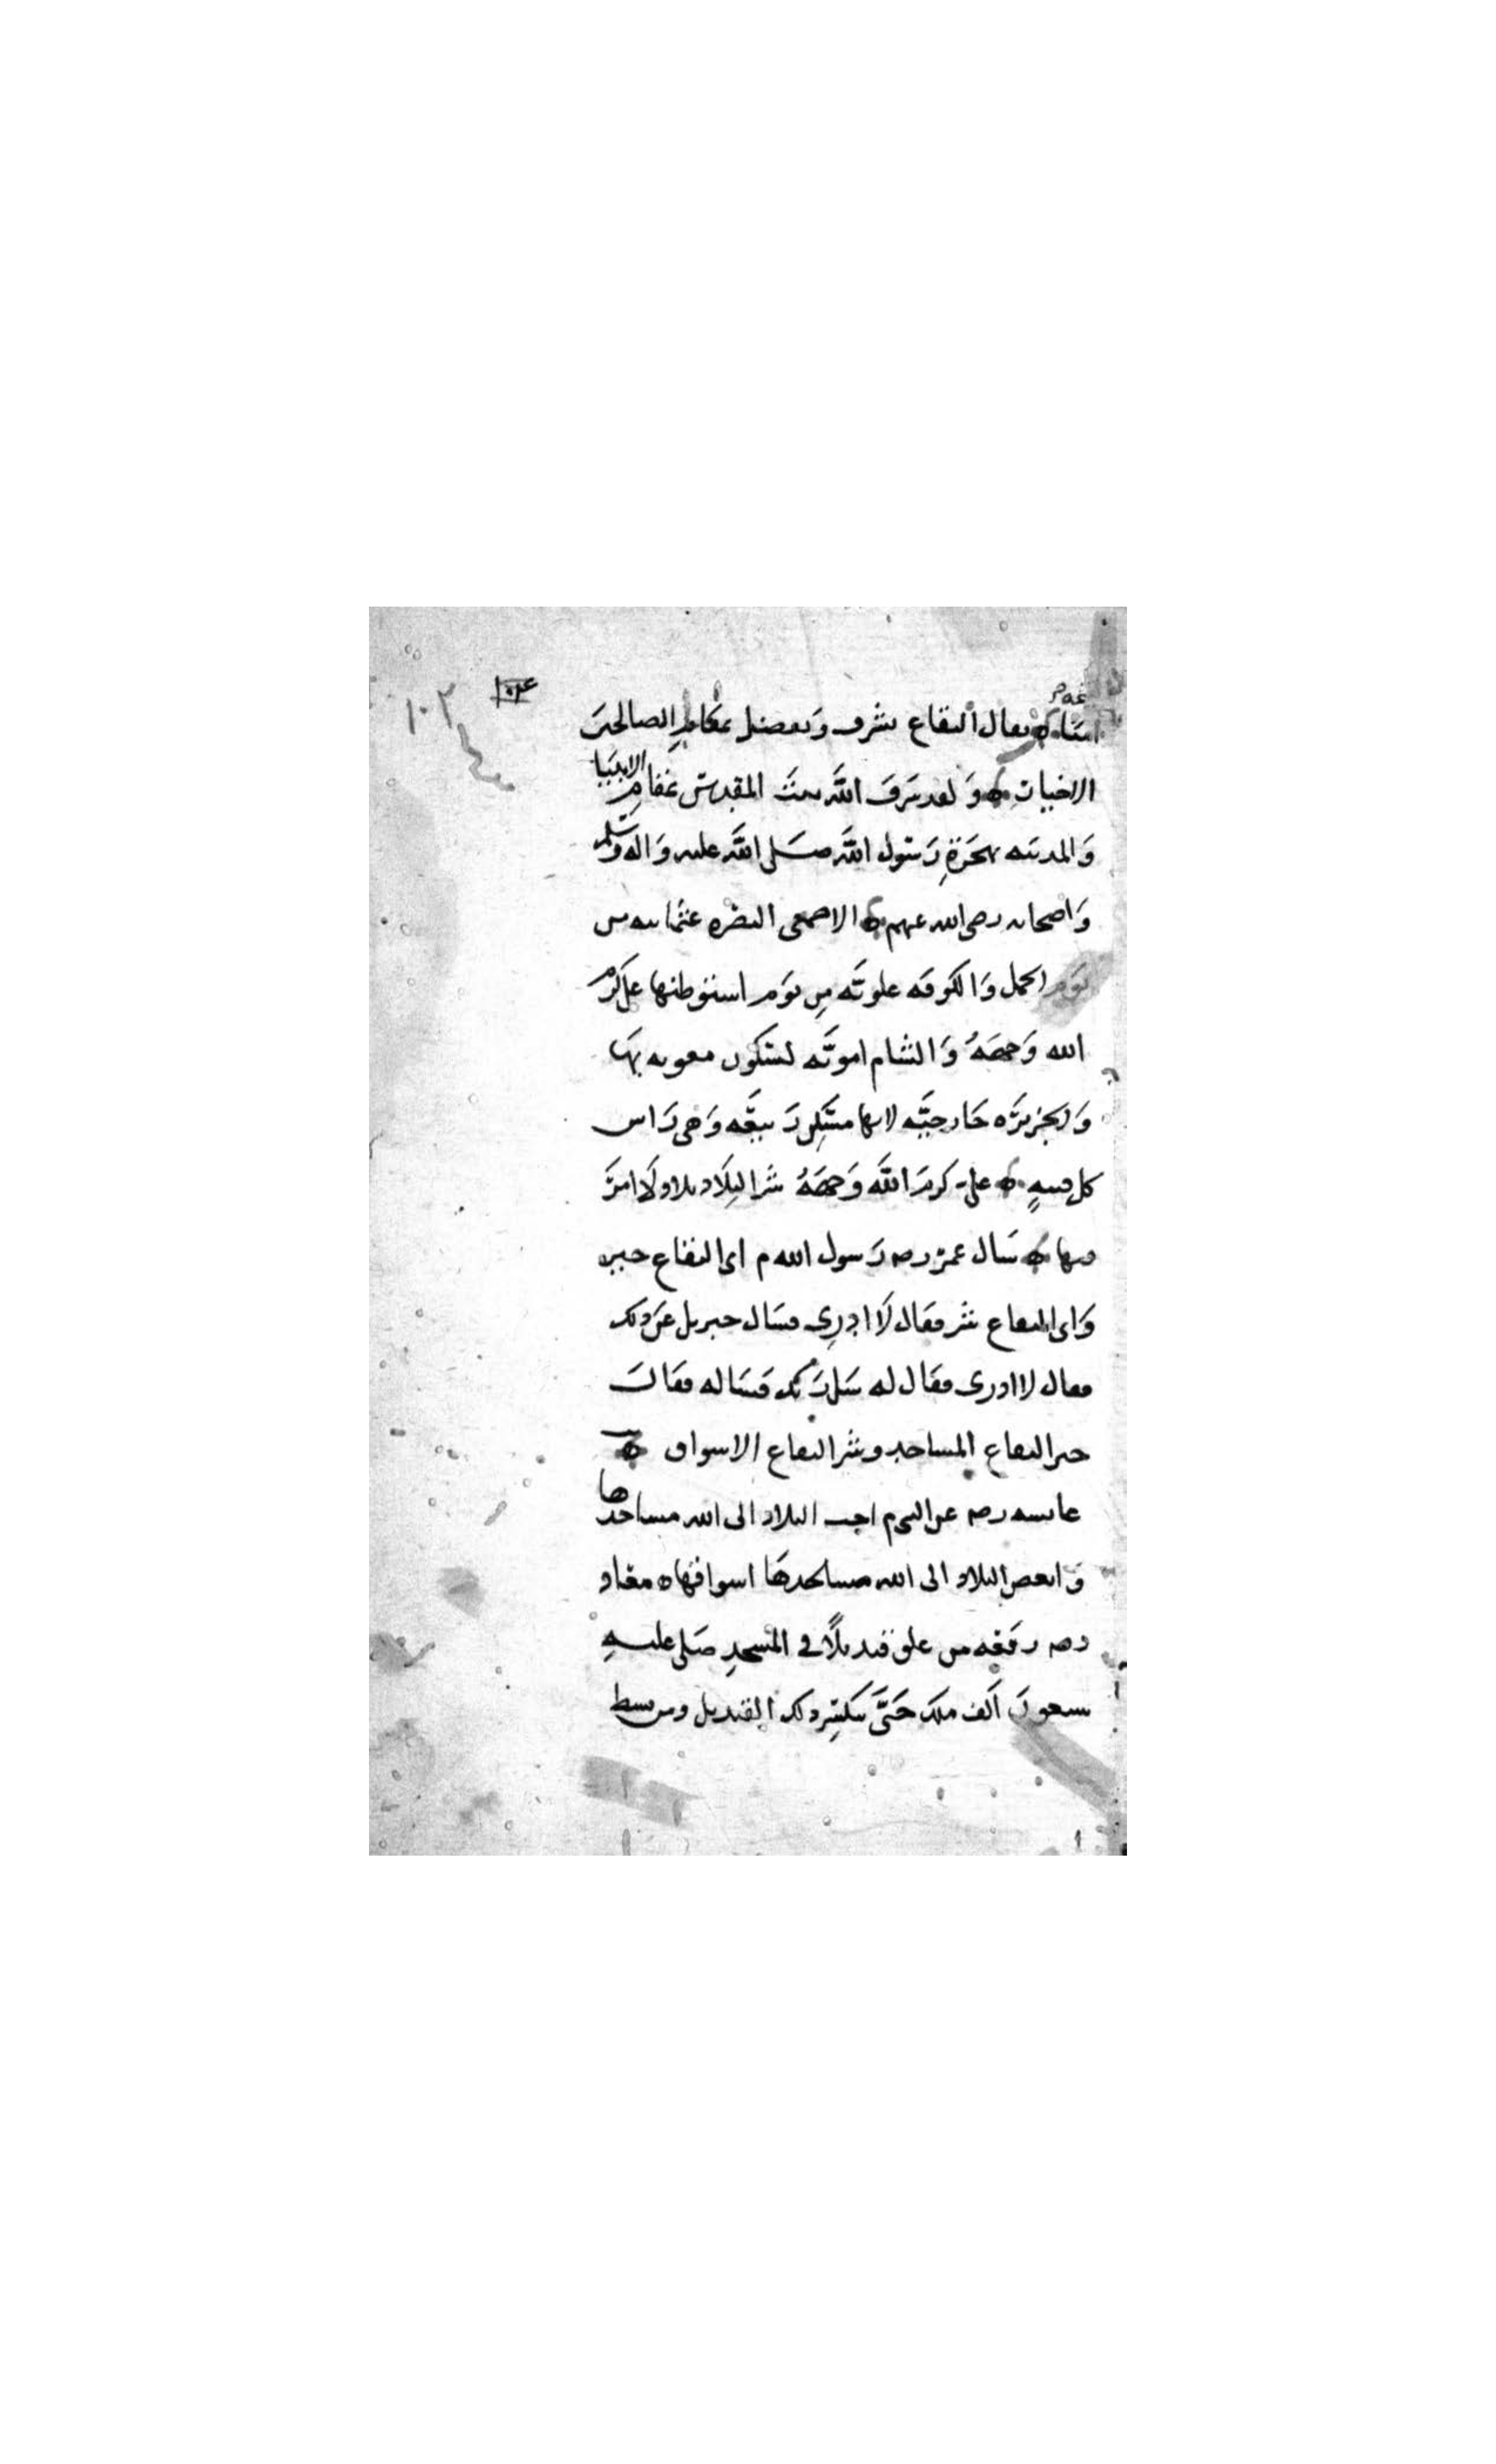 ١٠٣
امتناه يقال البقاع تشرف وتفضل بمقام الصالحين
الاخيات ه ولقد شرف الله بيت المقدس بمقام الانبيا
والمدينه بهجرة رسول الله صلى الله عليه واله وسلم
واصحابه رضى الله عنهم ه الاصمعى البصره عثمانيه من
يوم الجمل والكوفه علويه من يوم استوطنها على كرم
الله وجهه والشام امويه لسكون معويه بها
والجزيره خارجيه لانها مسكن ربيعه وهى راس
كل فتنه ه على كرم الله وجهه شر البلاد بلاد لا امير
فيها ه سال عمر رضه رسول الله م اى البقاع خير
واى البقاع شر فقال لا ادرى فسال جبريل عن ذلك
فقال لا ادرى فقال له سل ربك فساله فقال
خير البقاع المساجد وشر البقاع الاسواق ه
عايشه رضه عن النبى م احب البلاد الى الله مساجدها
وابغض البلاد الى الله مساجدها اسواقها ه معاذ
رضه رفعه من علق قنديلا فى المسجد صلى عليه
سبعون الف ملك حتى ينكسر ذلك القنديل ومن بسط